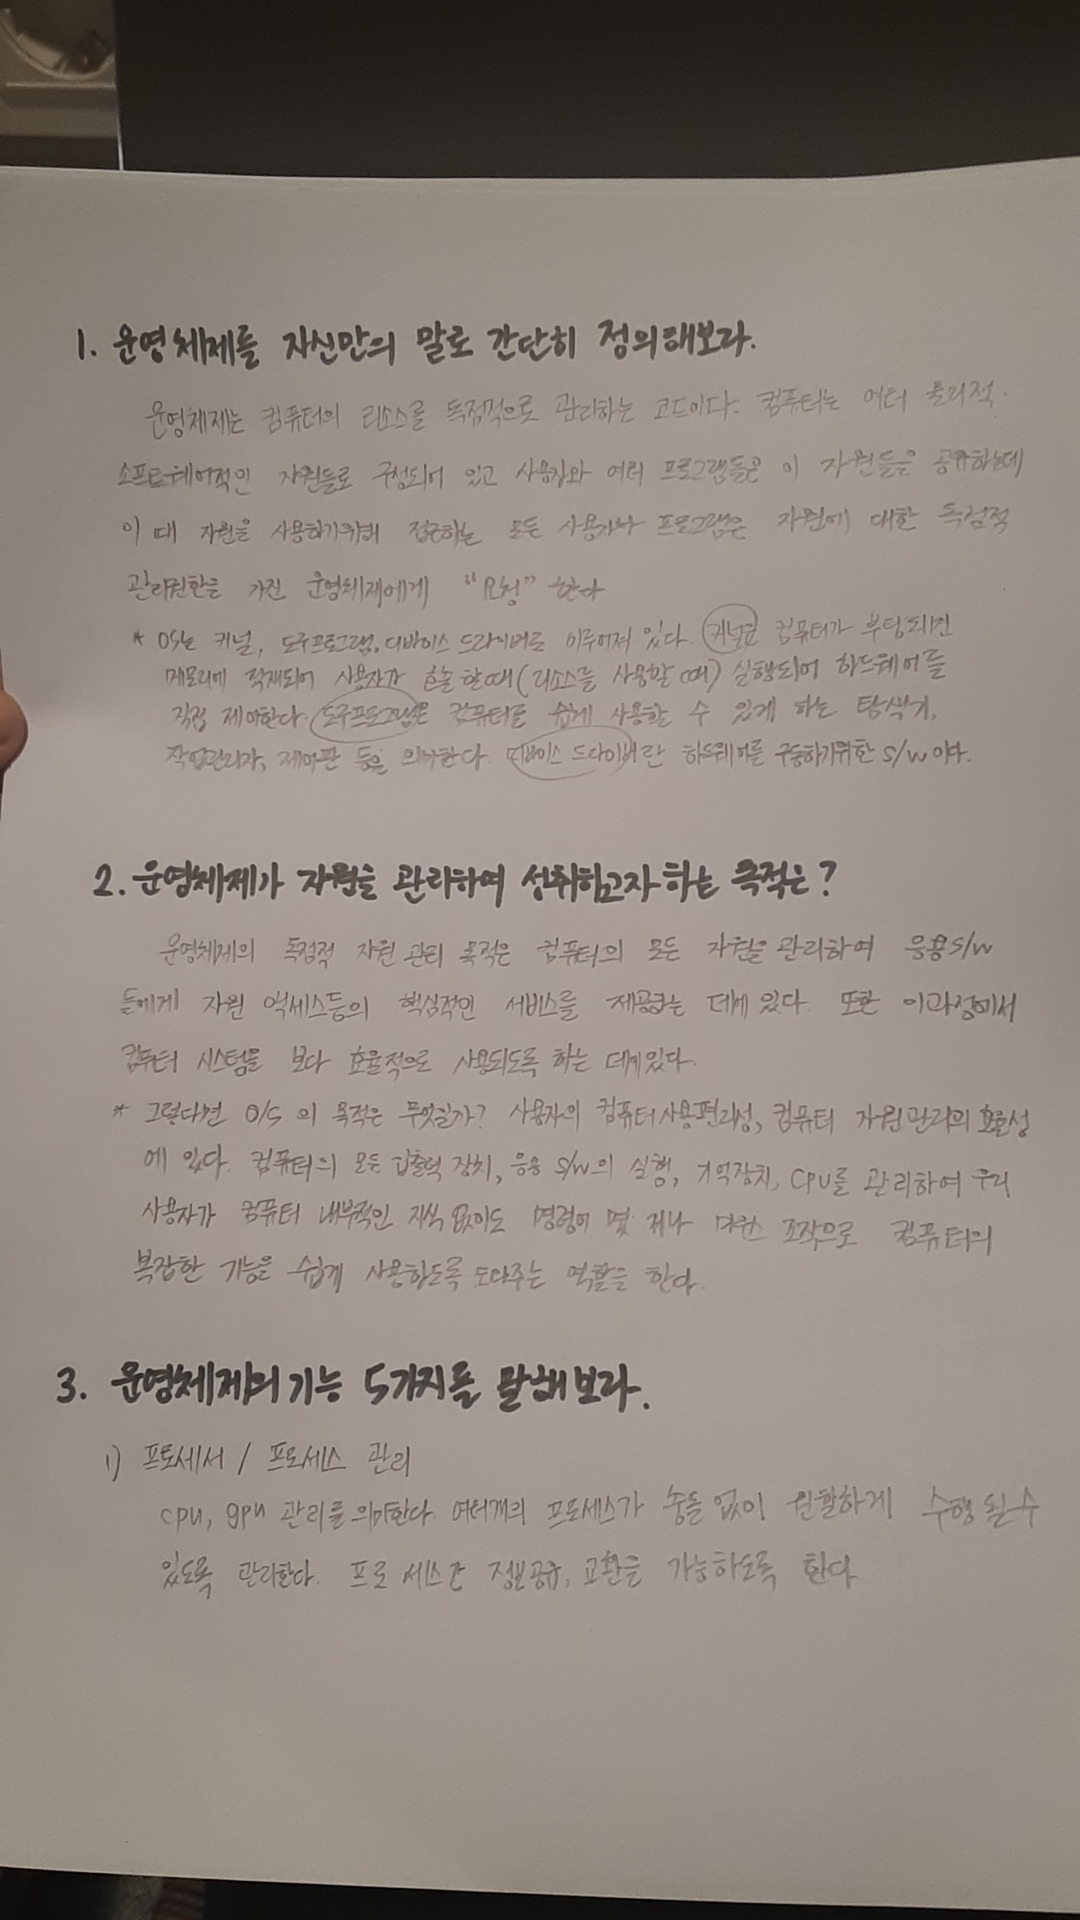 1. 운영체제를 자신만의 말로 간단히 정의해보라.
운영체제는 컴퓨터의 리소스를 독점적으로 관리하는 코드이다. 컴퓨터는 여러 물리적.
소프트웨어적인 자원들로 구성되어 있고 사용자와 여러 프로그램들은 이 자원들을 공유하는데
이 때 자원을 사용하기위해 접근하는 모든 사용자나 프로그램은 자원에 대한 독점적
관리권한을 가진 운영체제에게 "요청" 한다
* OS는 커널, 도구프로그램, 디바이스 드라이버로 이루어져 있다. 커널은 컴퓨터가 부팅되면
메모리에 적재되어 사용자가 호출 할 때 (리소스를 사용할 때) 실행되어 하드웨어를
직접 제어한다. 도구프로그램은 컴퓨터를 쉽게 사용할 수 있게 하는 탐색기,
작업관리자, 제어판 등을 의미한다. 디바이스 드라이버란 하드웨어를 구동하기위한 S/W 이다.
2. 운영체제가 자원을 관리하여 성취하고자 하는 목적은?
운영체제의 독점적 자원 관리 목적은 컴퓨터의 모든 자원을 관리하여 응용S/W
들에게 자원 액세스등의 핵심적인 서비스를 제공하는 데에 있다. 또한 이과정에서
컴퓨터 시스템을 보다 효율적으로 사용되도록 하는 데에있다.
* 그렇다면 O/S 의 목적은 무엇일까? 사용자의 컴퓨터사용편리성, 컴퓨터 자원관리의 효율성
에 있다. 컴퓨터의 모든 입출력 장치, 응용 S/W의 실행, 기억장치, CPU를 관리하여 우리
사용자가 컴퓨터 내부적인 지식 없이도 명령어 몇 개나 마우스 조작으로 컴퓨터의
복잡한 기능을 쉽게 사용하도록 도와주는 역할을 한다.
3. 운영체제의 기능 5가지를 말해보라.
1) 프로세서 / 프로세스 관리
cpu, gpu 관리를 의미한다. 여러개의 프로세스가 충돌 없이 원활하게 수행 될 수
있도록 관리한다. 프로세스간 정보공유, 교환을 가능하도록 한다